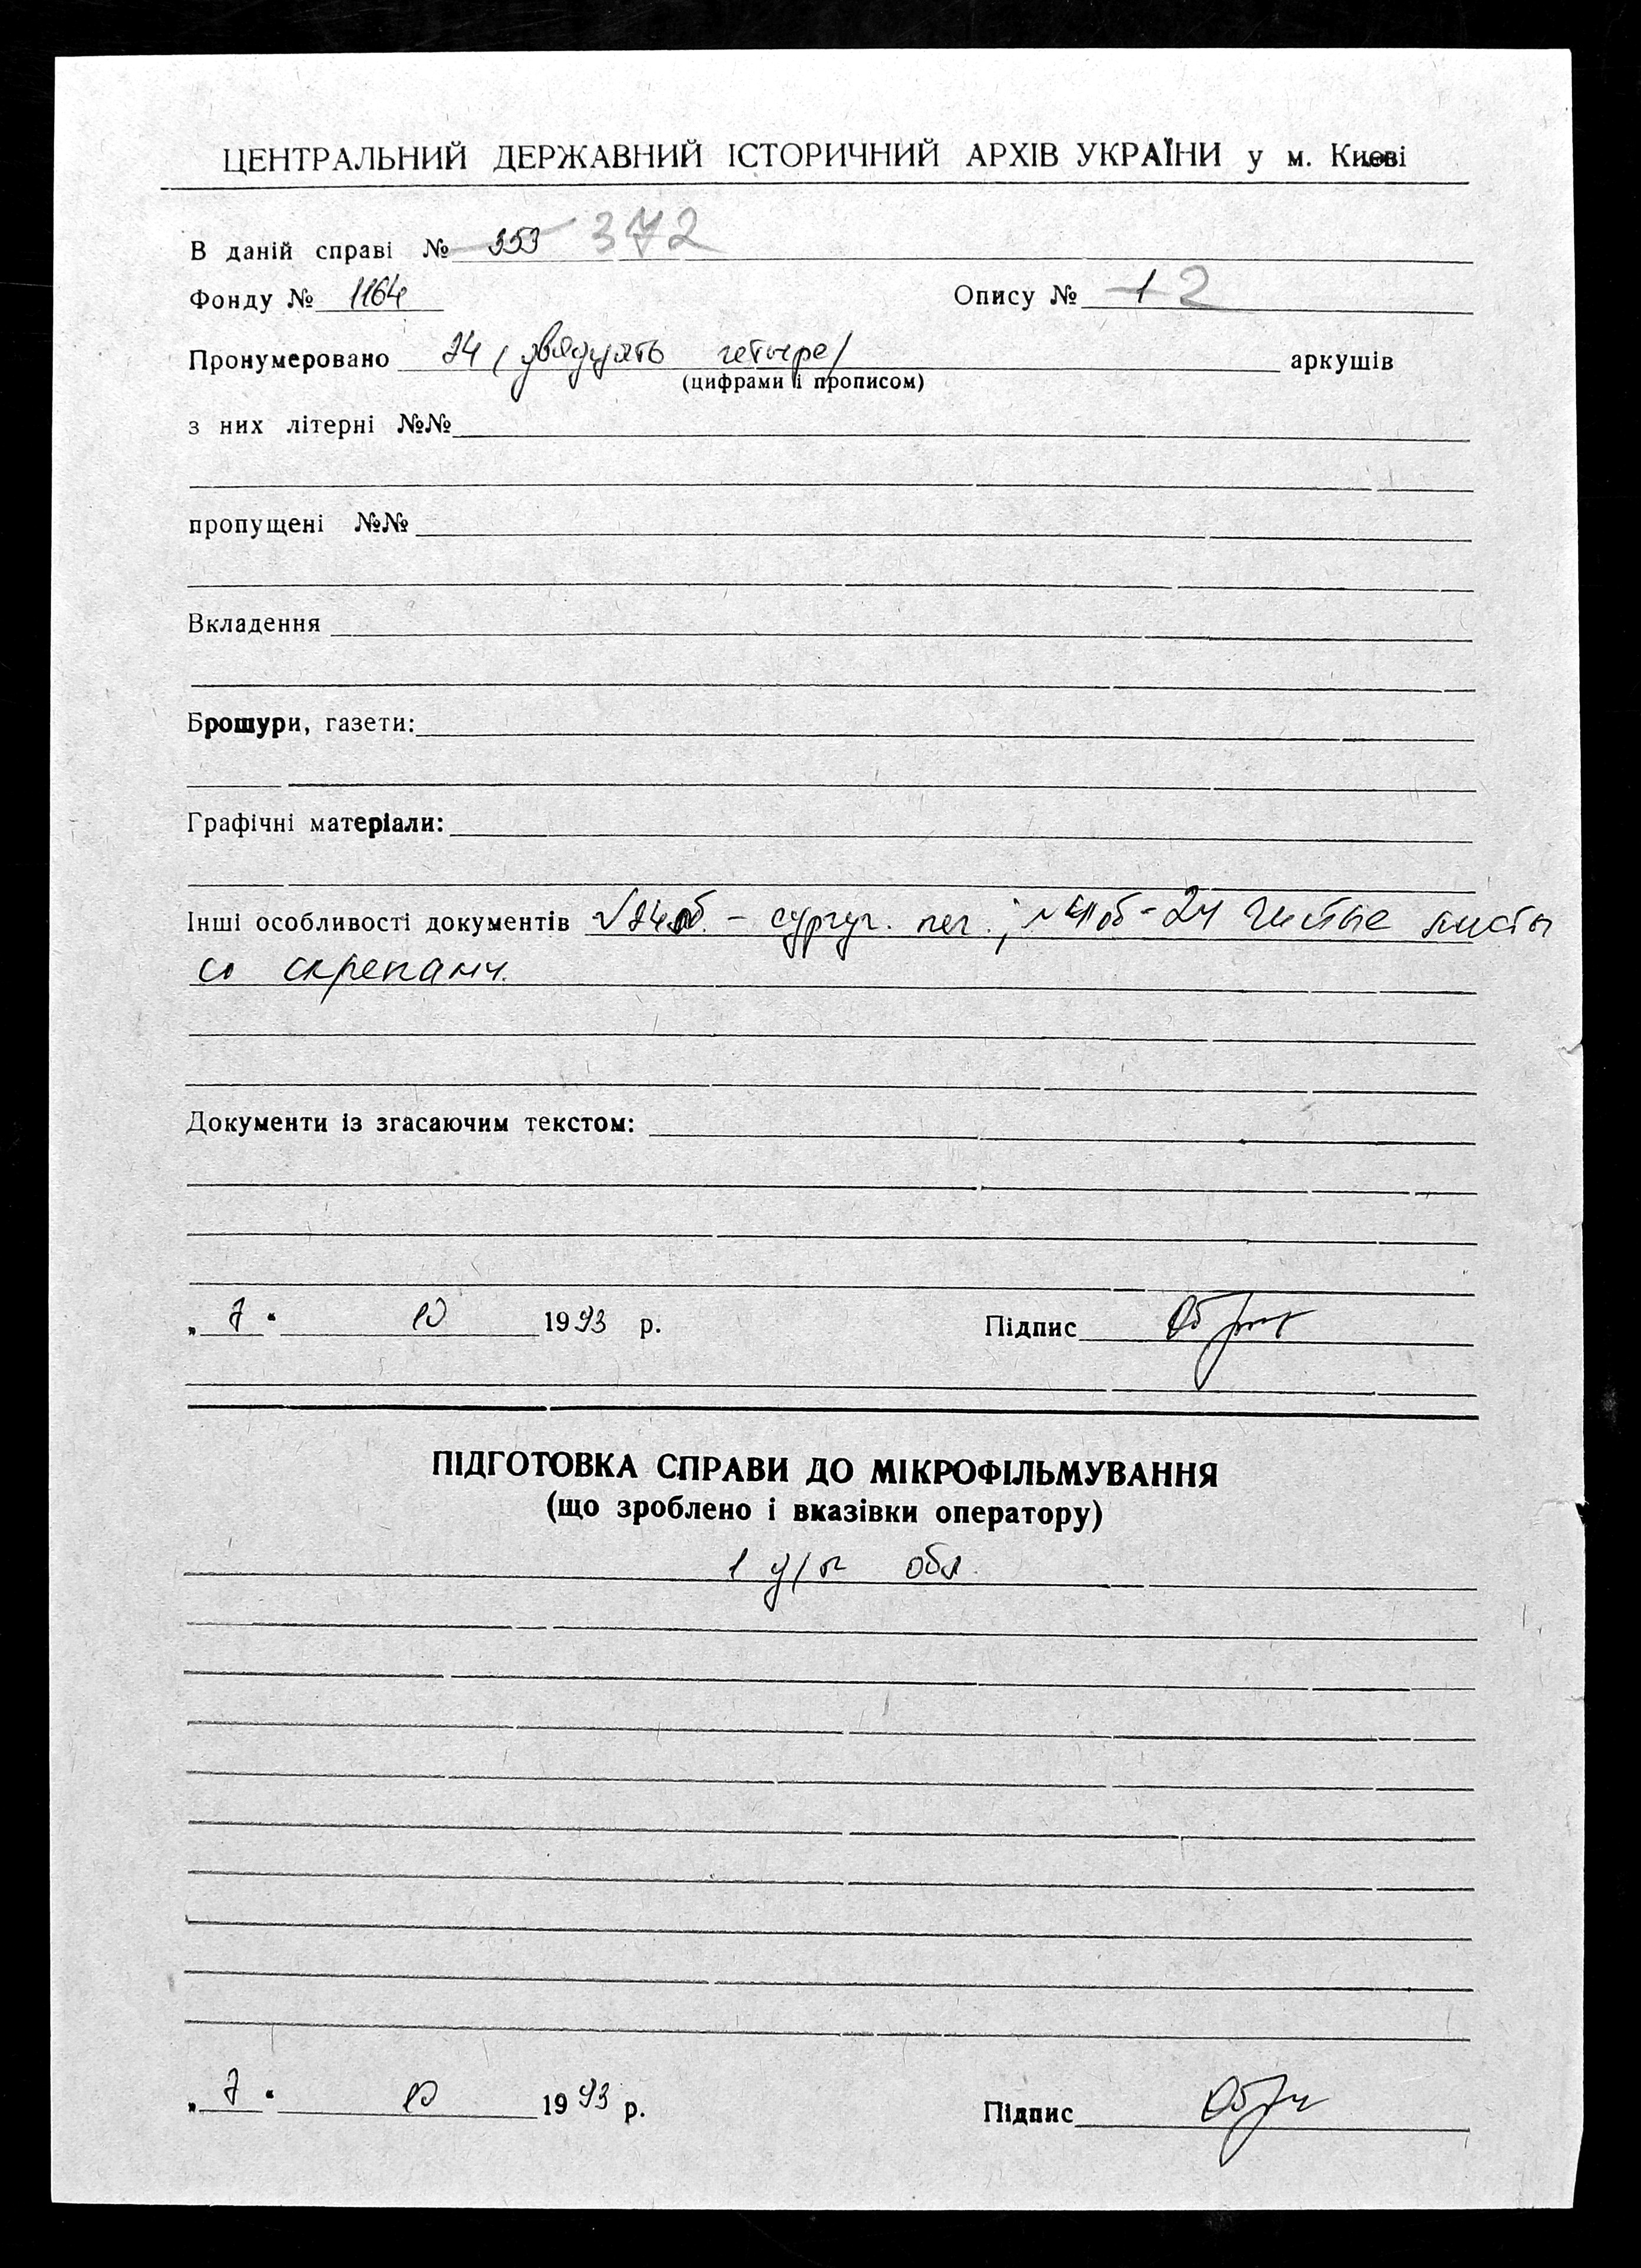 ЦЕНТРАЛЬНИЙ ДЕРЖАВНИЙ ІСТОРИЧНИЙ АРХІВ УКРАЇНИ у м. Києві
В даній справі № 353 372
Фонду № 1164 Опису № 1 2
Пронумеровано 24 (двадцать четыре) аркушів
(цифрами і прописом)
з них літерні №№
пропущені №№
Вкладення
Брошури, газети:
Графічні матеріали:
Інші особливості документів 24об. - сургуч. печ.; 24 чистые листы
со скрепами.
Документи із згасаючим текстом:
„ 7 “ 10 1993 р. Підпис
ПІДГОТОВКА СПРАВИ ДО МІКРОФІЛЬМУВАННЯ
(що зроблено і вказівки оператору)
1 обл.
„ 7 “ 10 1993 р. Підпис